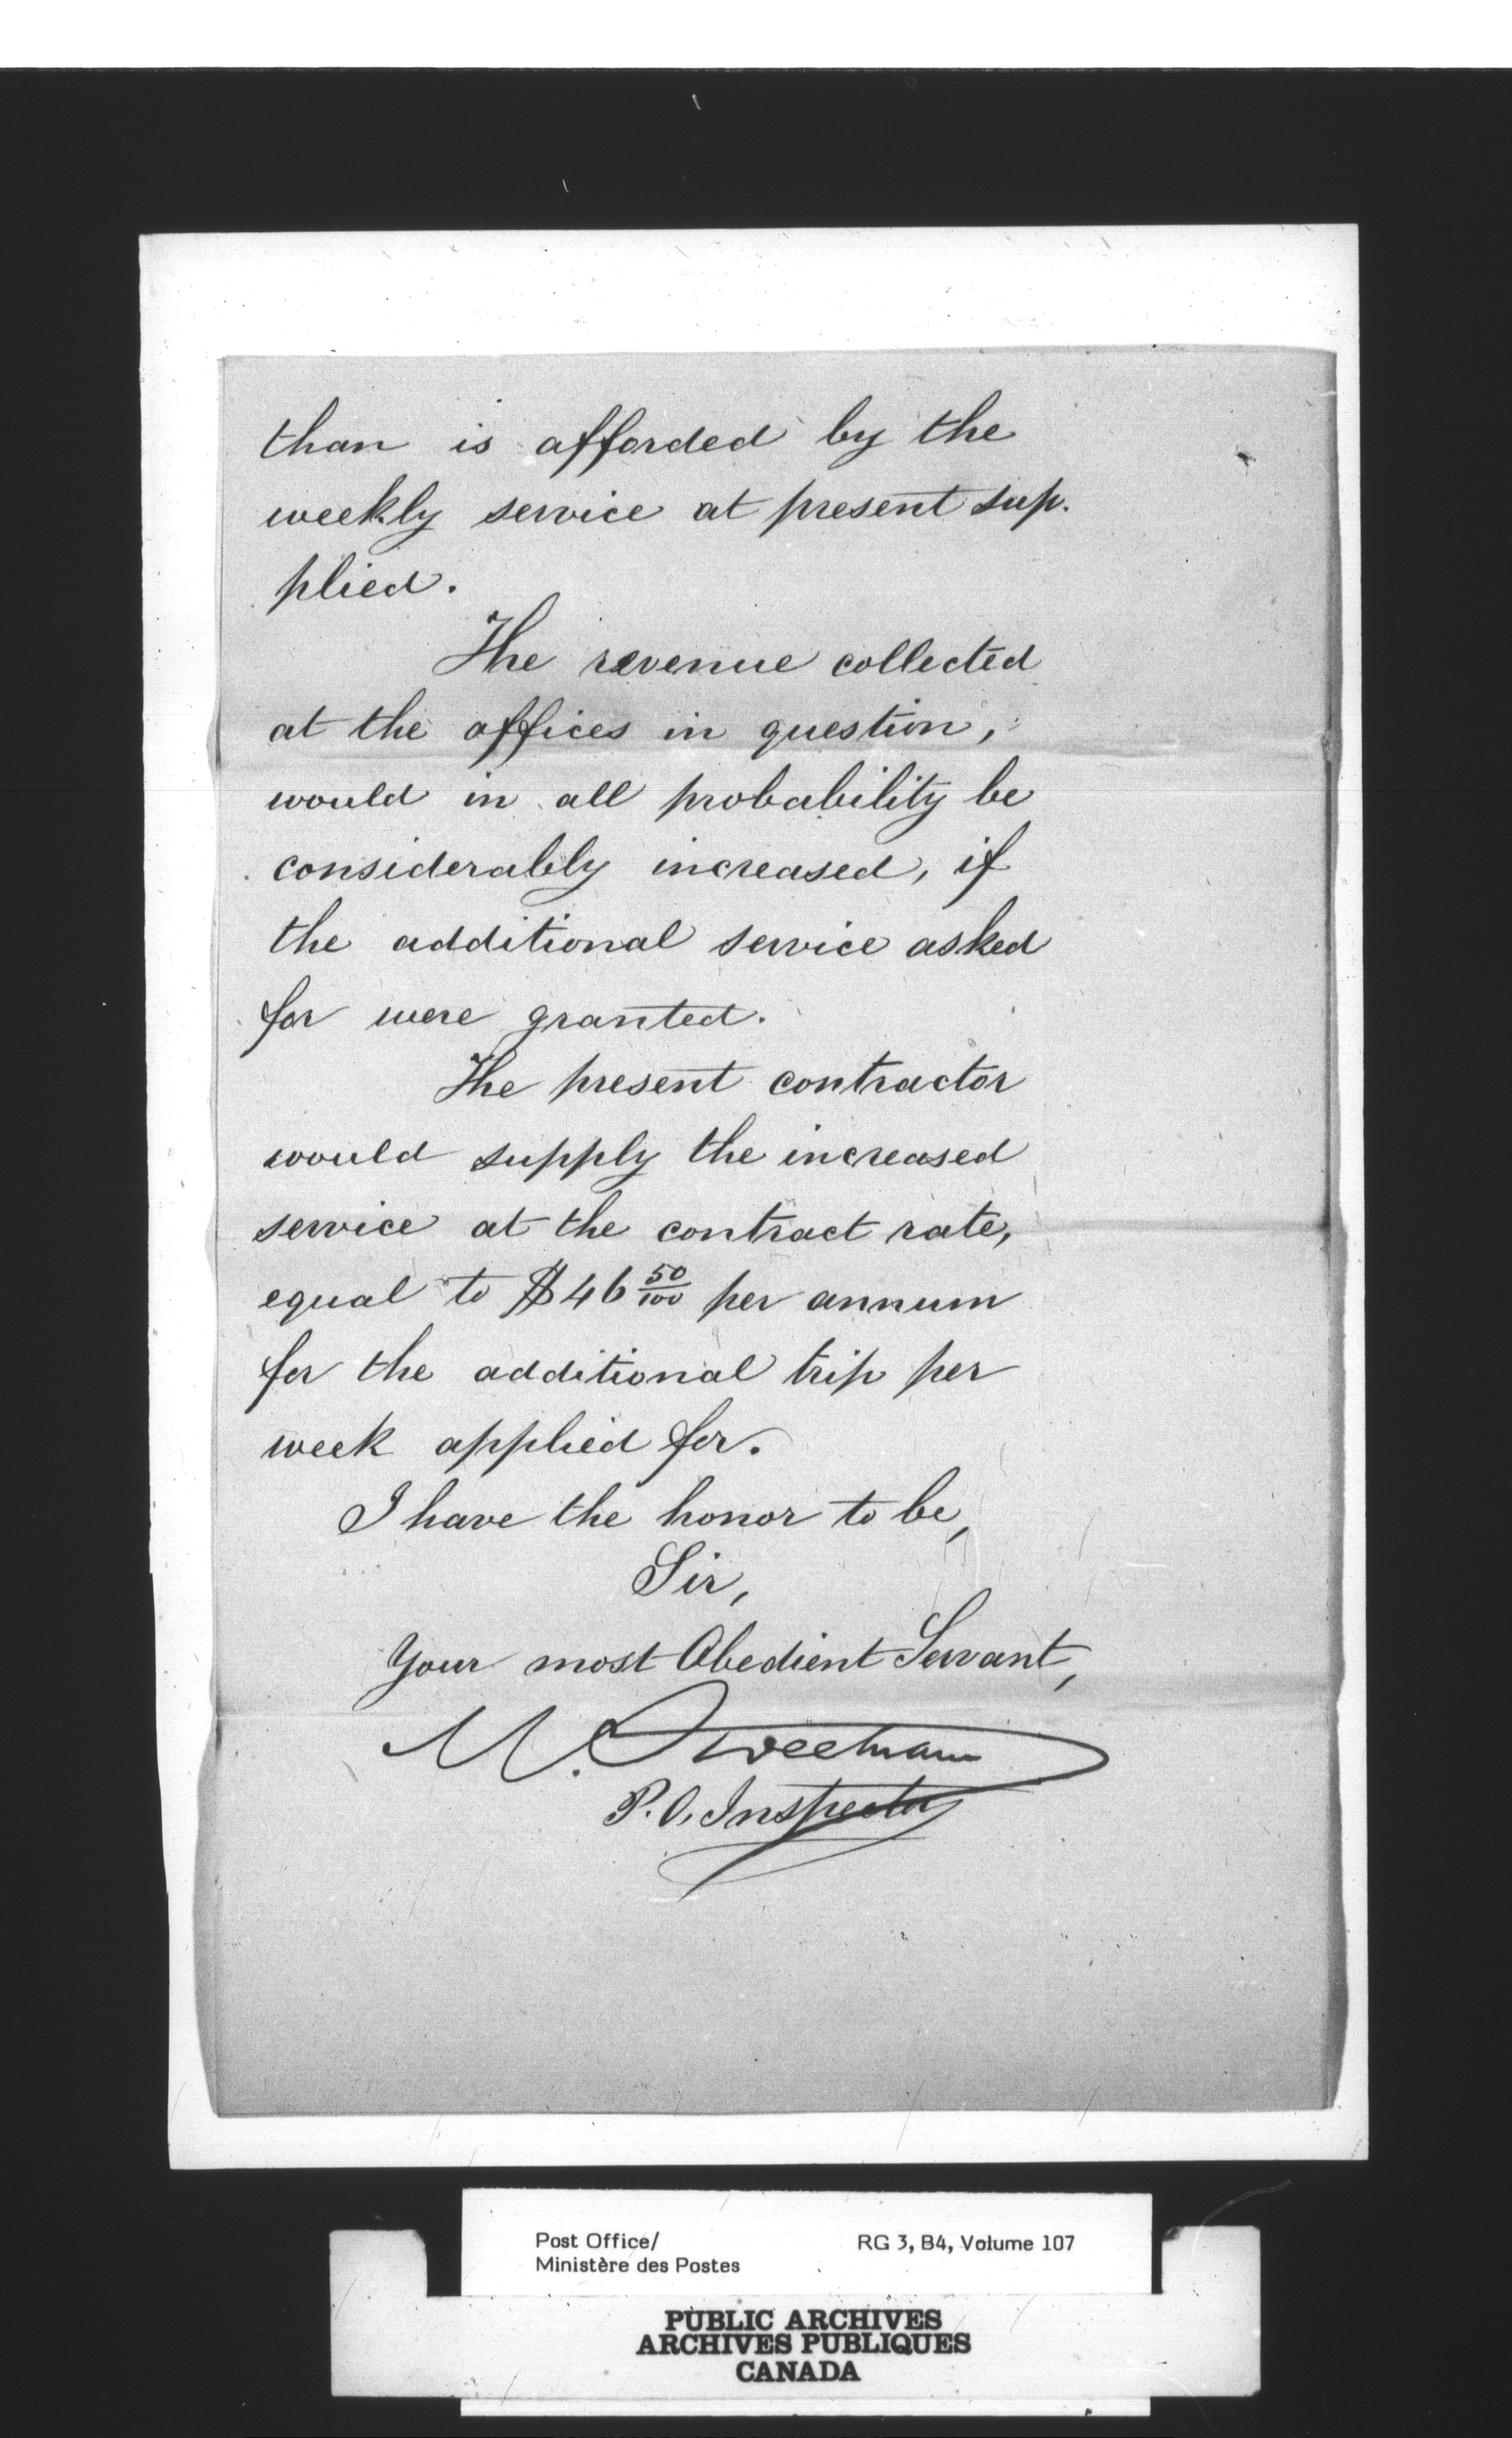 than is afforded by the
weekly service at present sup.
plied.
The revenue collected
at the offices in question,
would in all probability be
considerably increased, if
the additional service asked
for were granted.
The present contractor
would supply the increased
service at the contract rate,
equal to $46 50/100 per annum
for the additional trip per
week applied for.
I have the honor to be,
Sir,
Your most Obedient Servant,
M. Sweetnam
P.O. Inspector
Post Office/ RG 3, B4, Volume 107
Ministère des Postes
PUBLIC ARCHIVES
ARCHIVES PUBLIQUES
CANADA